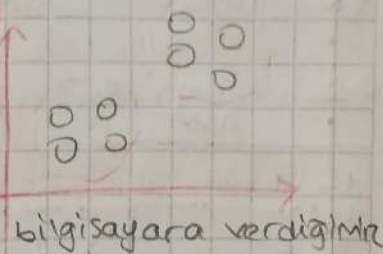 bilgisayara verdiğimiz